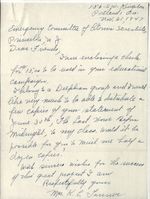 Portland, Ore.
Nov. 21, 1947
Emergency Committee of Atomic Scientists
Princeton, N. J.
Dear Friends,
I am enclosing check
for $5.00 to be used in your educational
campaign.
I belong to a Delphian group and would
like very much to be able to distribute a
few copies of your statement of
June 30th, "To Last Hour before
Midnight," to my class. Would it be
possible for you to mail me half a
dozen copies.
With sincere wishes for the success
of this great project I am
Respectfully yours
Mrs. K. L.